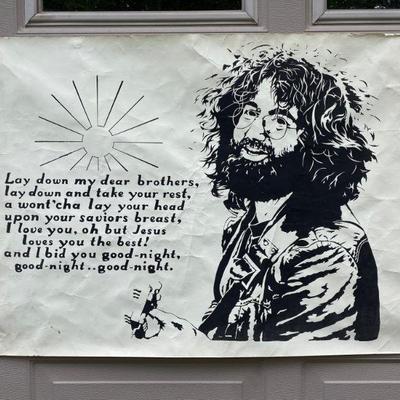 Lay down my dear brothers,
lay down and take your rest,
a wont'cha lay your head
upon your saviors breast,
I love you, oh but Jesus
loves you the best!
and I bid you good-night,
good-night..good-night.